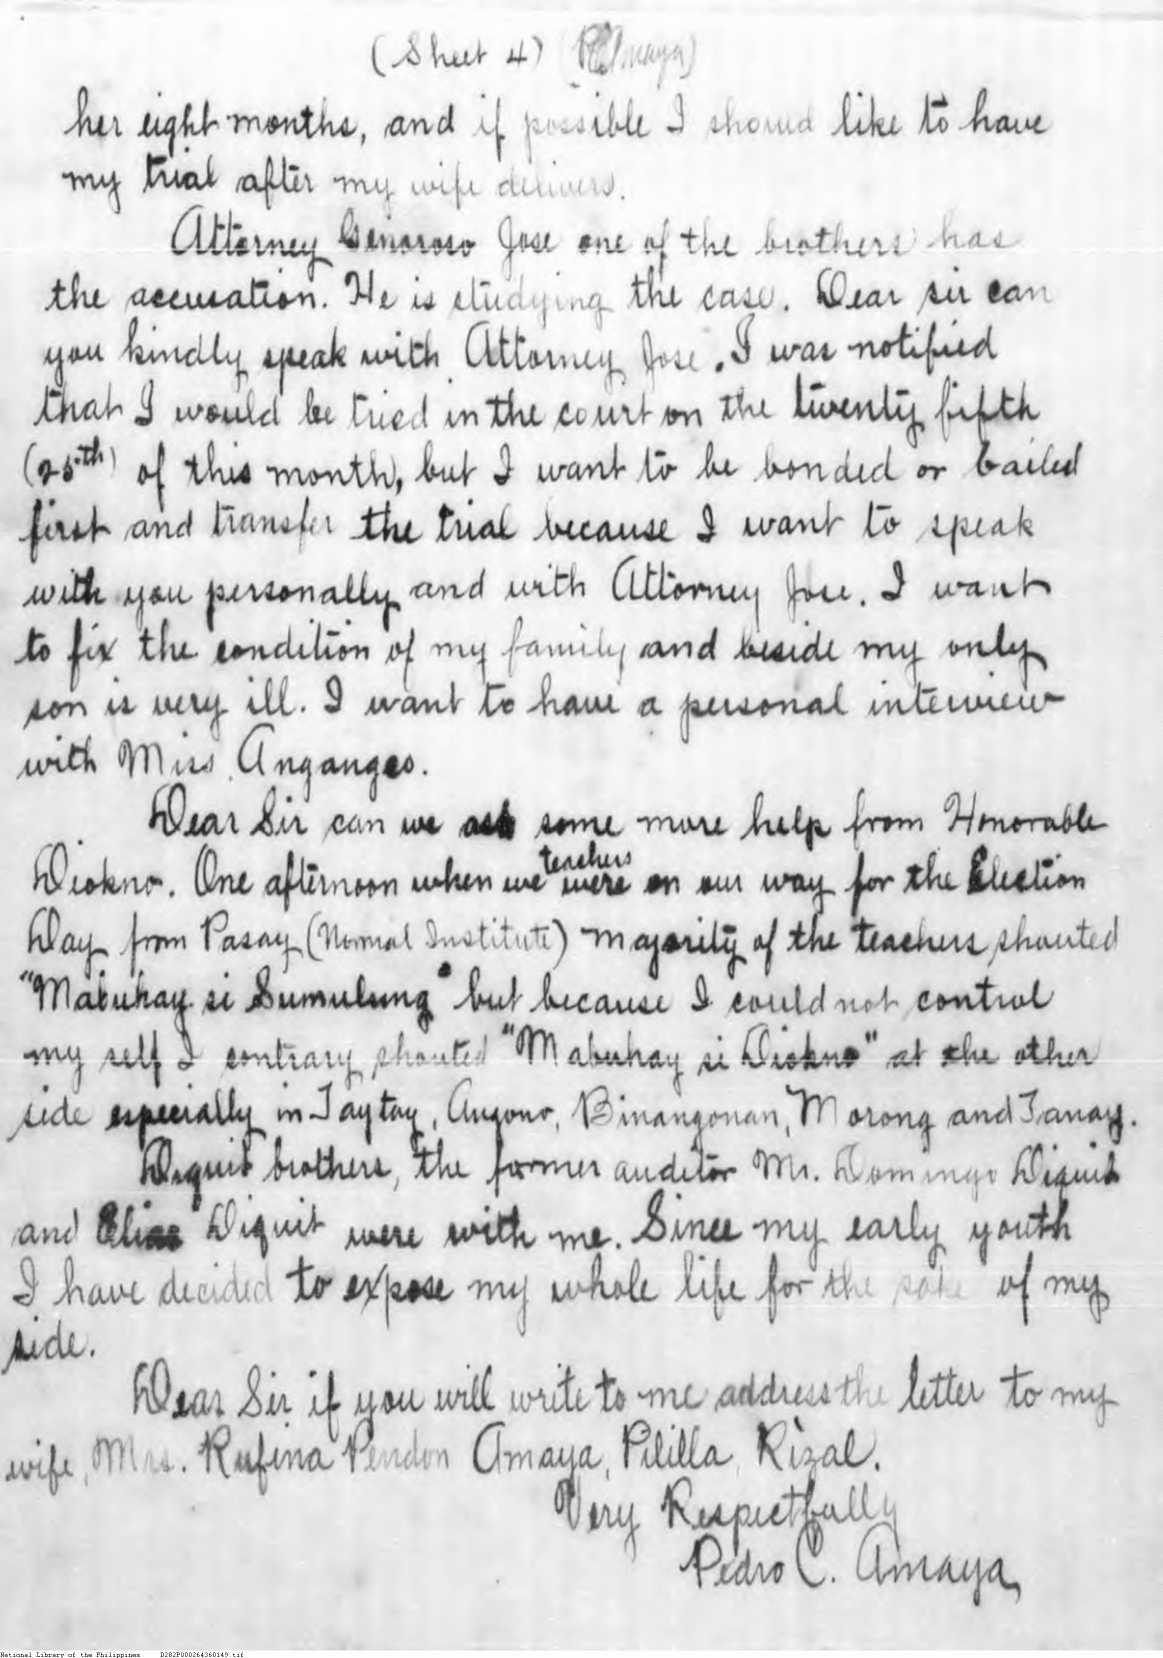 (Sheet 4) (P.C. Amaya)
her eight months, and if possible I should like to have
my trial after my wife delivers.
Attorney Genoroso Jose one of the brothers has
the accusation. He is studying the case. Dear sir can
you kindly speak with Attorney Jose. I was notified
that I would be tried in the court on the twenty fifth
(25th) of this month, but I want to be bonded or bailed
first and transfer the trial because I want to speak
with you personally and with Attorney Jose. I want
to fix the condition of my family and beside my only
son is very ill. I want to have a personal interview
with Miss Angangco.
Dear Sir can we ask some more help from Honorable
teachers
Diokno. One afternoon when we were on our way for the Election
Day from Pasay (Normal Institute) majority of the teachers shouted
"Mabuhay si Sumulung" but because I could not control
my self I contrary shouted "Mabuhay si Diokno" at the other
side especially in Taytay, Angono, Binangonan, Morong and Tanay.
Diquit brothers, the former auditor Mr. Domingo Diquit
and Elias Diquit were with me. Since my early youth
I have decided to expose my whole life for the sake of my
side.
Dear Sir if you will write to me address the letter to my
wife, Mrs. Rufina Pendon Amaya, Pililla, Rizal.
Very Respectfully
Pedro C. Amaya
National Library of the Philippines D282P000264360149.tif